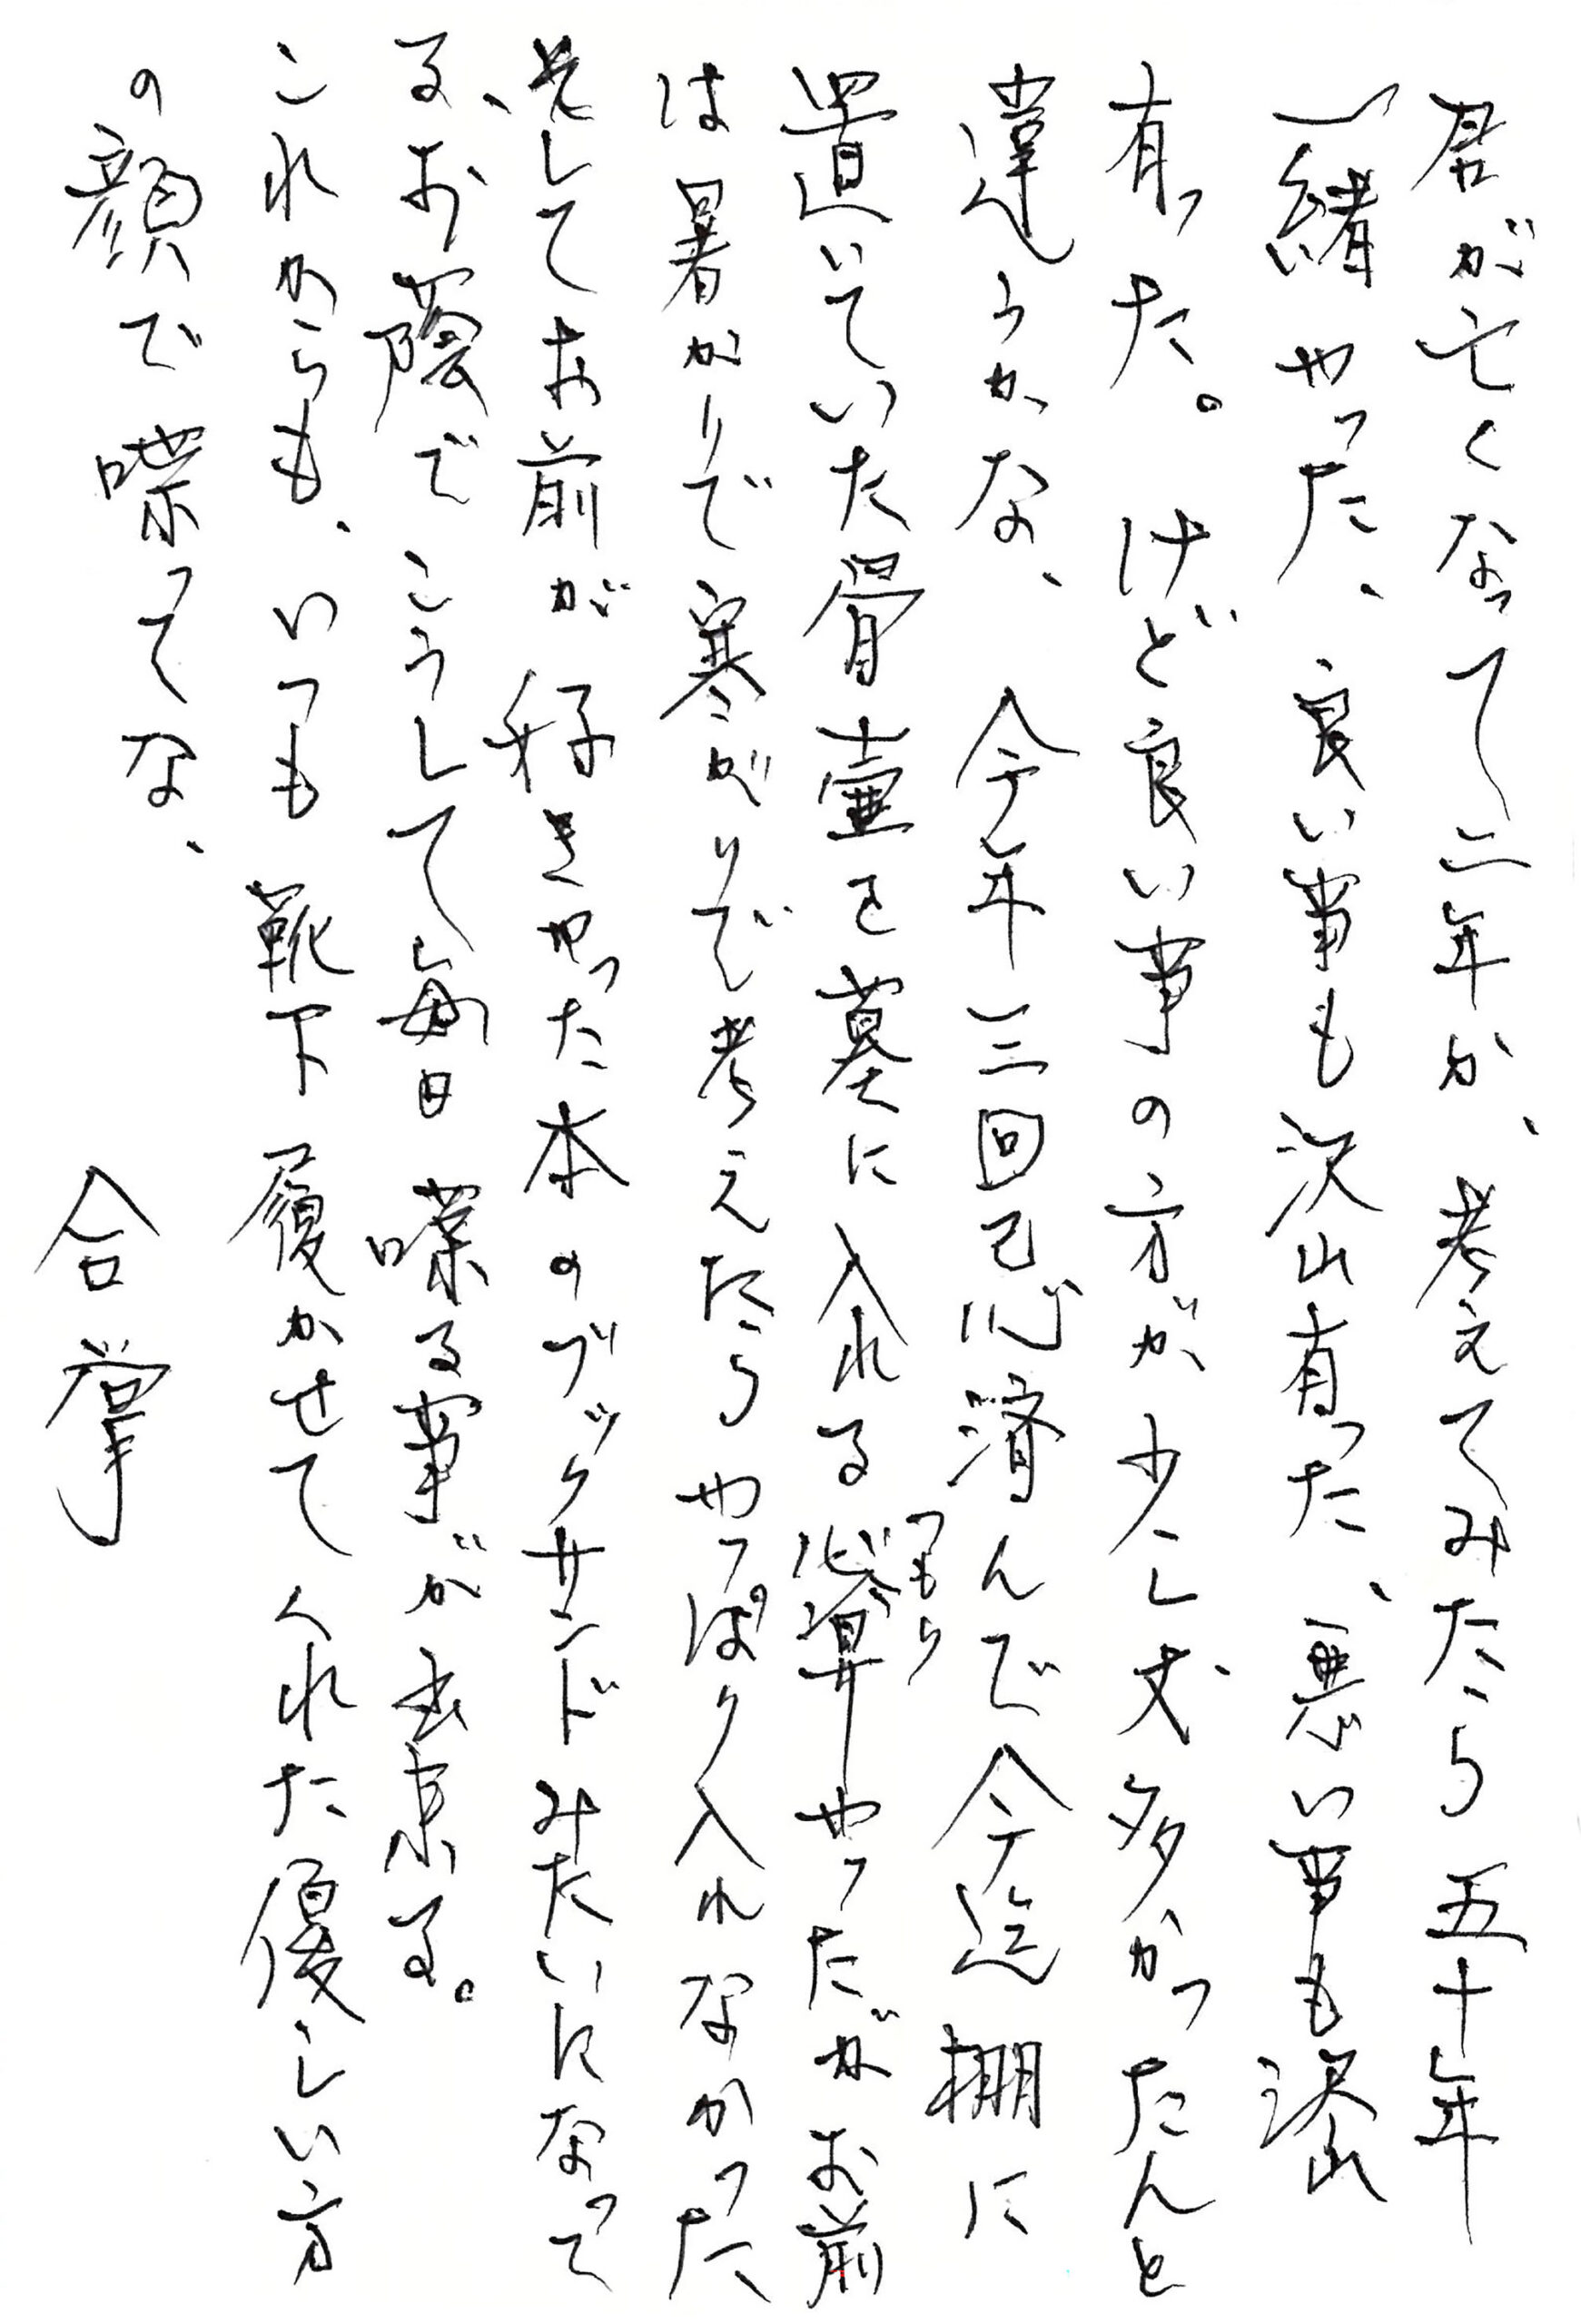 君が亡くなって二年か、考えてみたら五十年
一緒やった、良い事も沢山有った、悪い事も沢山
有った。けど良い事の方が少し丈多かったんと
違うかな、今年三回忌済んで今迄棚に
置いていた骨壷を墓に入れる心算やったがお前
つもり
は暑がりで寒がりで考えたらやっぱり入れなかった
そしてお前が好きやった本のブックサンドみたいになって
る、お蔭でこうして毎日喋る事が出来る。
これからも、いつも靴下履かせてくれた優しい方
の顔で喋ってな、
合掌